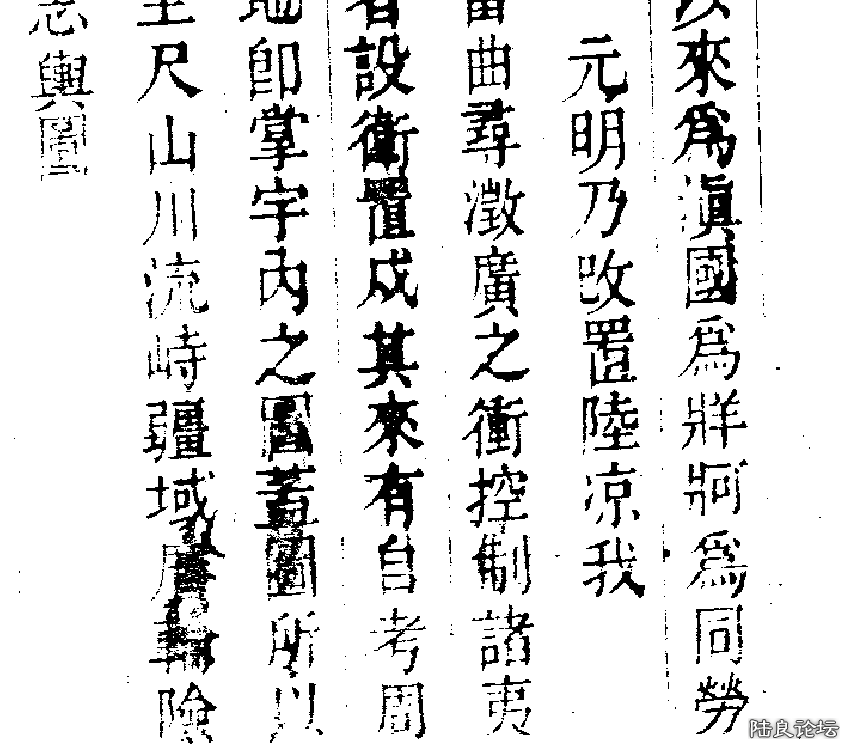 以來爲滇國爲牂牁爲同勞
元明乃改置陸凉我
曲尋澂廣之衝控制諸夷
者設衛置戍其來有自考周
地卽掌宇內之圖蓋圖所以
尺山川流峙疆域險
志輿圖
陆良论坛